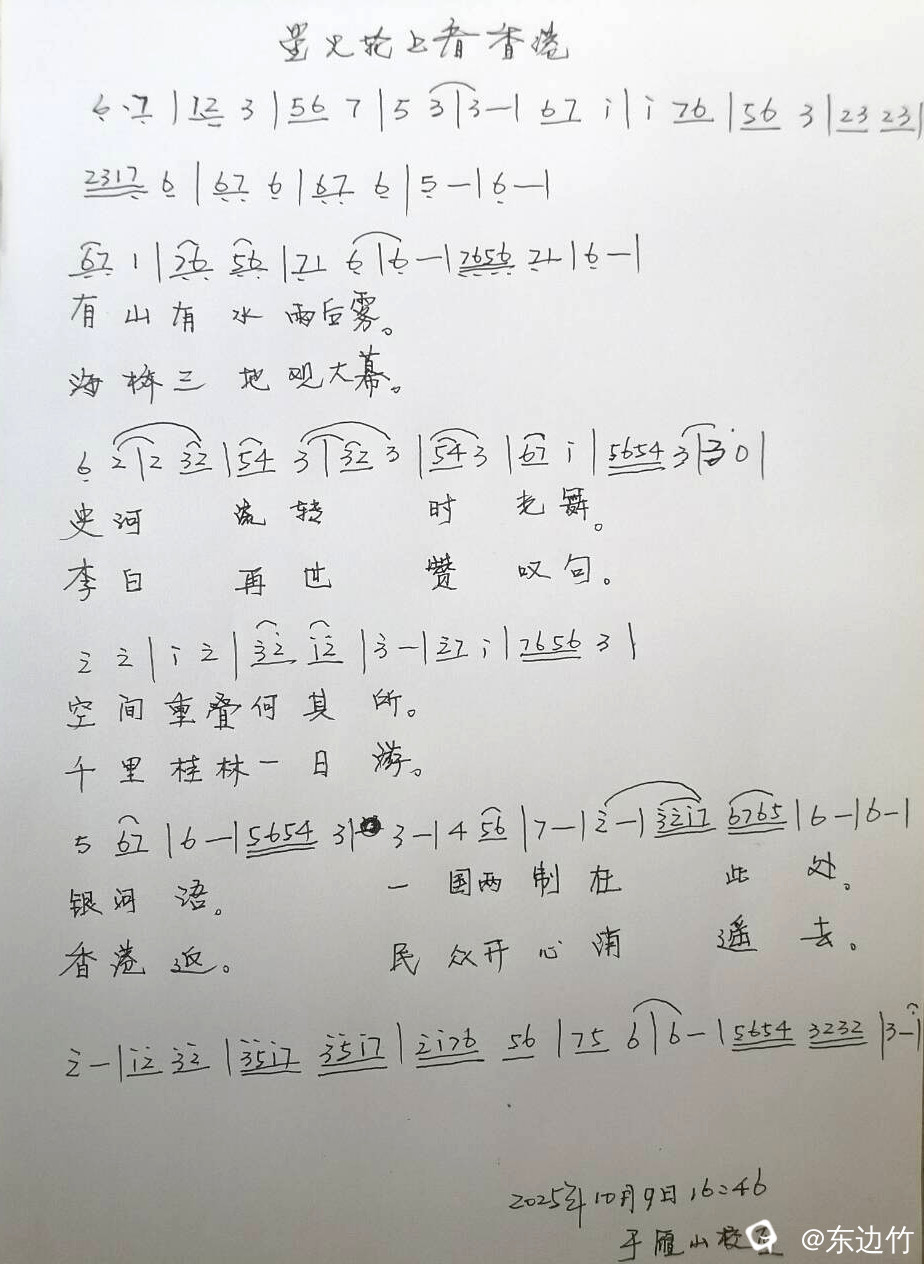 星火轮上看香港
6·7|12 3|56 7|5 3|3-|67 i|i 76|56 3|23 23|
2317 6|67 6|67 6|5-|6-|
67 1|26 56|71 6|6-|7656 71|6-|
有山有水雨后雾。
海桥三地观大幕。
6 2|2 32|54 3|32 3|54 3|67 i|5654 3|3 0|
史河流转时光舞。
李白再世赞叹句。
2 2|i 2|32 i2|3-|27 i|7656 3|
空间重叠何其所。
千里桂林一日游。
5 67|6-|5654 3| 3-|4 56|7-|2-|32i7 6765|6-|6-|
银河语。 一国两制在此处。
香港返。 民众开心消遥去。
2-|i2 32|35i7 35i7|2i76 56|75 6|6-|5654 3232|3-|
2025年10月9日16:46
于雁山校区
@东边竹